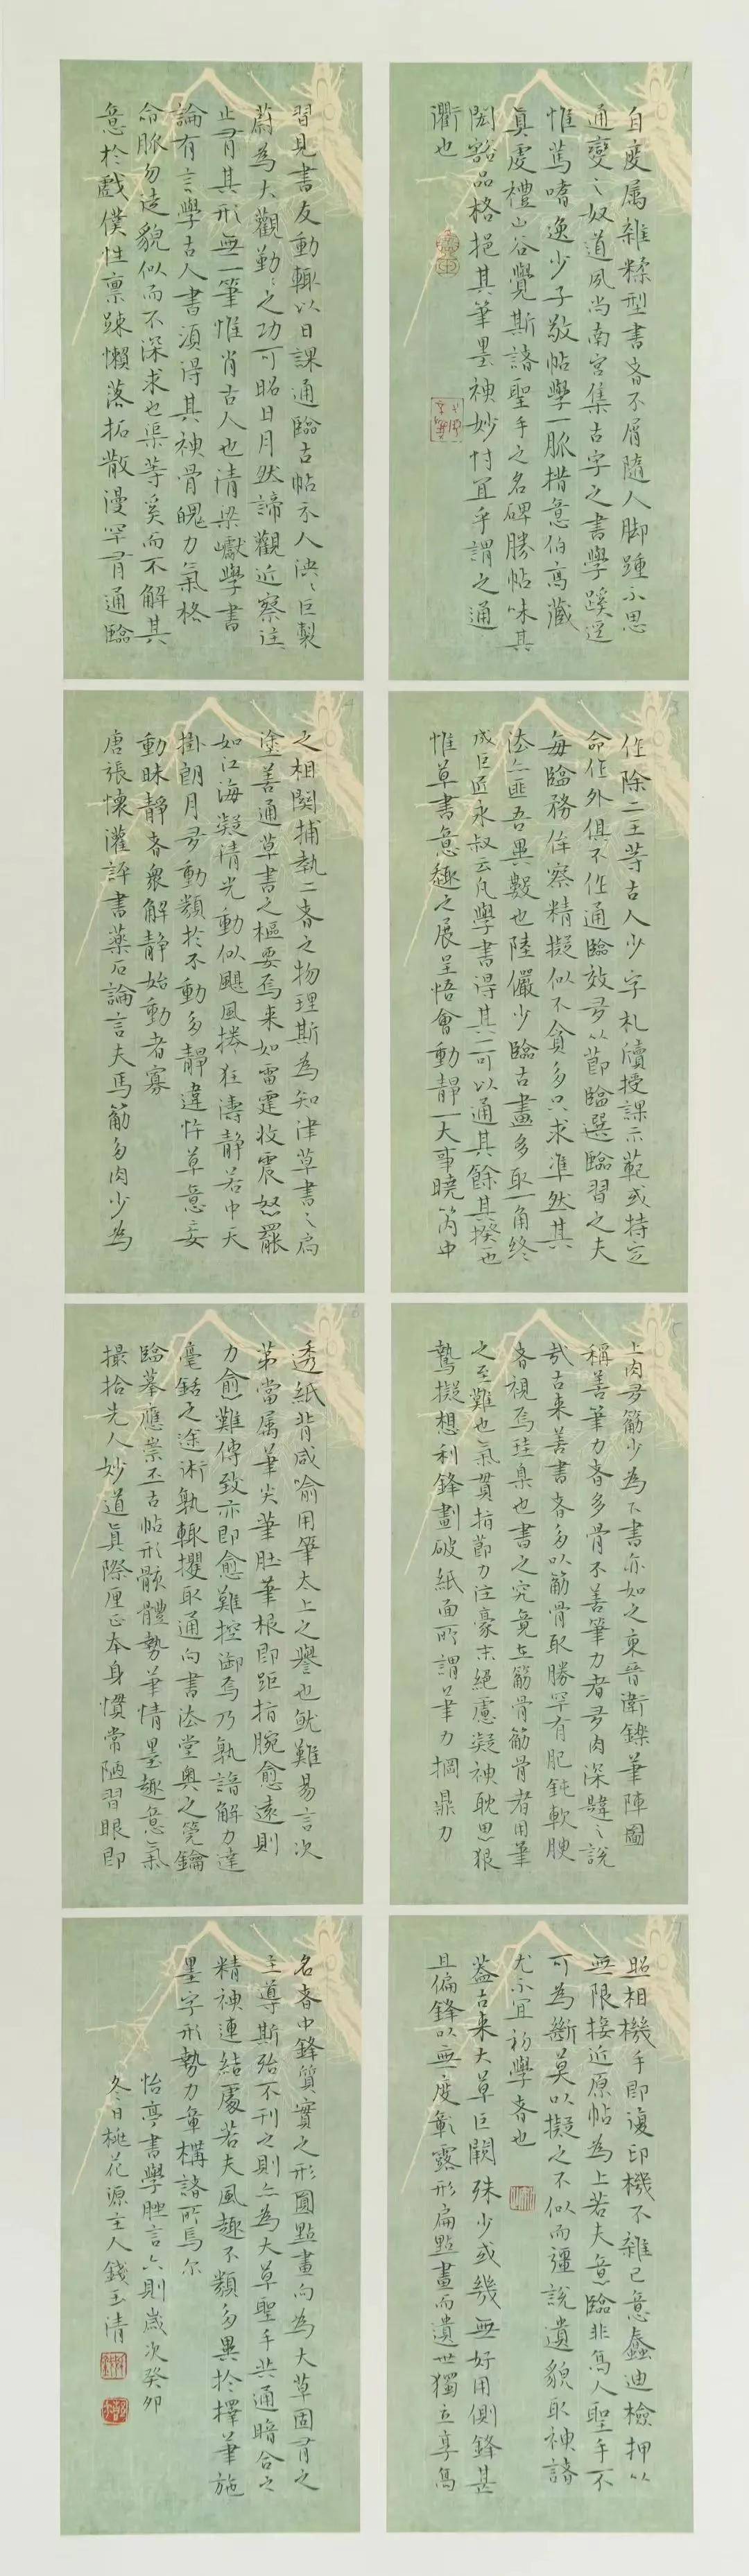 自度属雜糅型書者不屑隨人脚踵不思
通變之奴道夙尚南宮集古字之書學蹊逕
惟篤嗜逸少子敬帖學一脈措意伯高藏
真虔禮山谷覺斯諸聖手之名碑勝帖味其
閎谿品格挹其筆墨神妙忖宜乎謂之通
衢也
習見書友動輒以日課通臨古帖示人泱泱巨製
蔚為大觀勤勤之功可昭日月然諦觀近察注
止肖其形無一筆惟肖古人也清梁巘學書
論有言學古人書須得其神骨魄力氣格
命脈勿徒貌似而不深求也渠等奚而不解其
意於戲僕性稟踈懶落拓散漫罕有通臨
作除二王等古人少字札牘授課示範或持定
命作外俱不作通臨效爾以節臨選臨習之夫
每臨務侔察精擬似不貪多只求準然其
法亦匪吾異數也陸儼少臨古畫多取一角終
成巨匠永叔云凡學書得其一可以通其餘其揆也
惟草書意趣之展呈悟會動靜一大事曉筋中
之相關捕執二者之物理斯為知津草書之扃
塗善通草書之樞要焉来如雷霆收震怒罷
如江海凝清光動似颶風捲狂濤靜若中天
掛朗月爾動類於不動多靜違忤草意妄
動昧靜者衆解靜始動者寡
唐張懷瓘評書藥石論言夫馬筋多肉少為
上肉多筋少為下書亦如之東晉衛鑠筆陣圖
稱善筆力者多骨不善筆力者多肉深韙之說
哉古来善書者多以筋骨取勝罕有肥鈍軟腴
者視焉珪臬也書之究竟在筋骨筋骨者用筆
之至難也氣貫指節力注豪末絕慮凝神耽思狠
驚擬想利鋒劃破紙面所謂筆力摑鼎力
透紙背咸喻用筆太上之譽也魷難易言次
第當属筆尖筆肚筆根即距指腕愈遠則
力愈難傳致亦即愈難控御焉乃孰諳解力達
毫銛之途術孰輒攫取通向書法堂奥之筦鑰
臨摹應崇丕古帖形骸體勢筆情墨趣意氣
撮拾先人妙道真際厘正本身慣常陋習眼即
照相機手即複印機不雜己意蠡迪檢押以
無限接近原帖為上若夫意臨非寫人聖手不
可為斷莫以擬之不似而彊說遺貌取神諸
尤不宜初學者也
蓋古来大草巨闕殊少或幾無好用側鋒甚
且偏鋒以無度彰露形扁點畫而遺世獨立享寫
名者中鋒質實之形圓點畫向為大草固有之
主導斯殆不刊之則亦為大草聖手共通暗合之
精神連結處若夫風趣不類多異於擇筆施
墨字形勢力章構諸所焉尔
怡亭書學脞言六則歲次癸卯
冬日桃花源主人錢玉清